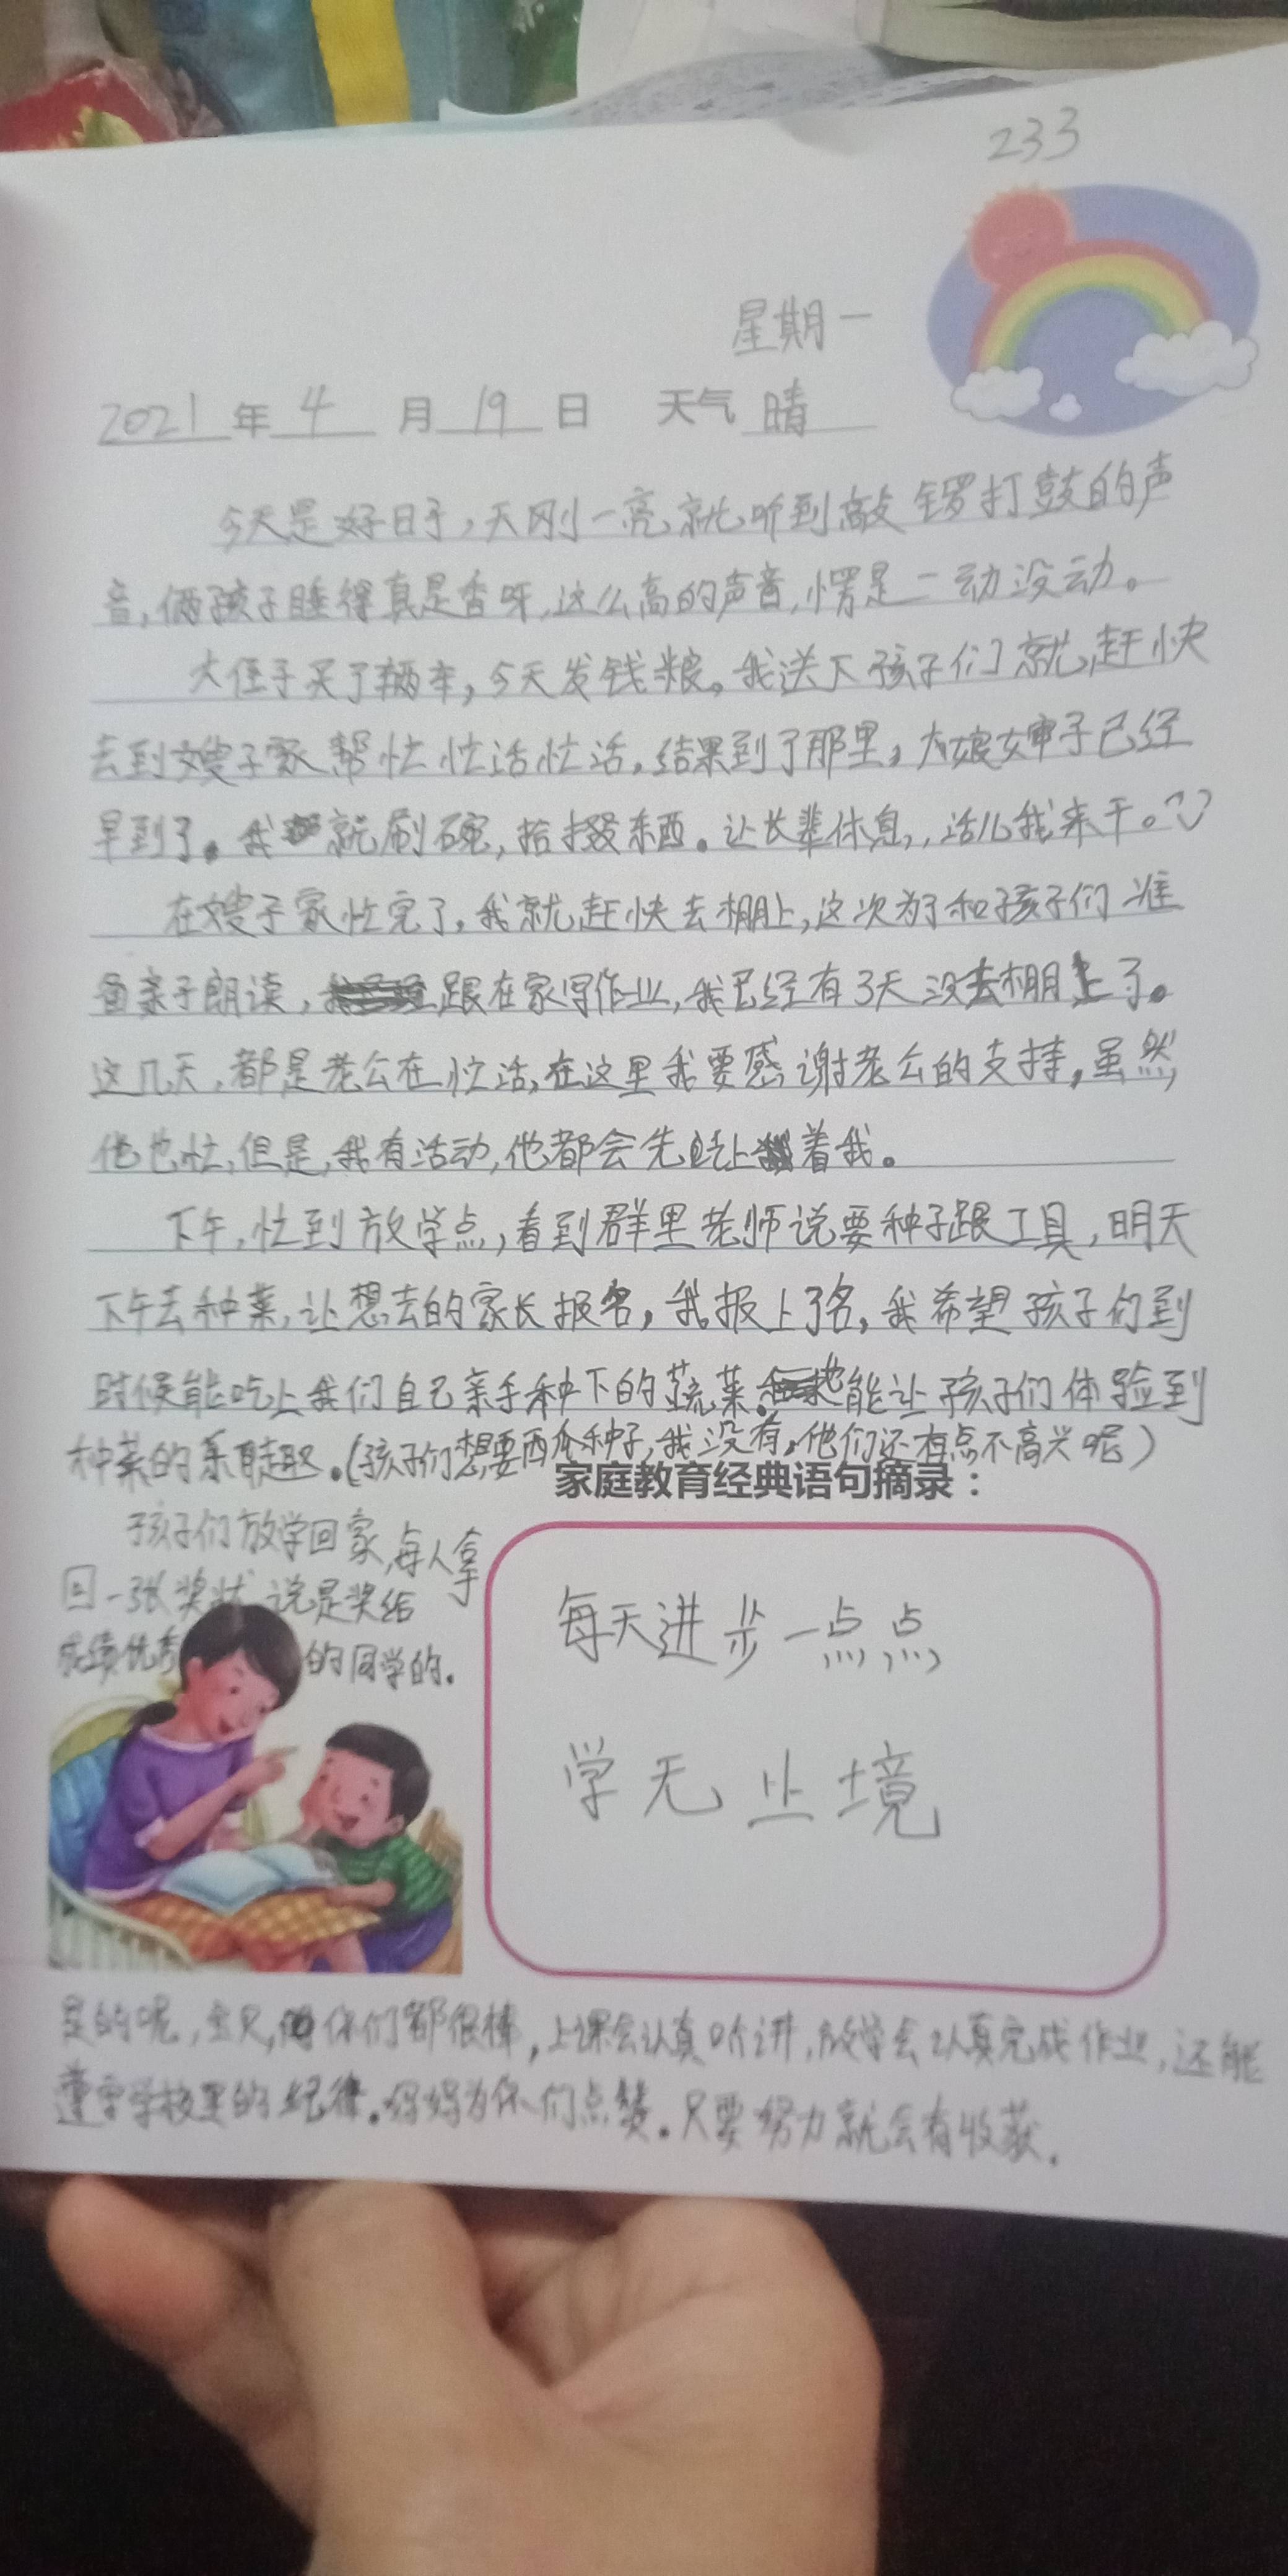 233
星期一
2021年4月19日 天气晴
今天是好日子,天刚一亮就听到敲锣打鼓的声
音,俩孩子睡得真是香呀,这么高的声音,愣是一动没动。
大侄子买了辆车,今天发钱粮。我送下孩子们就赶快
去到嫂子家帮忙忙活忙活。结果到了那里,大娘婶子已经
早到了。我就刷碗,拾掇东西。让长辈休息,,活儿我来干。
在嫂子家忙完了,我就赶快去棚上,这次为了和孩子们准
备亲子朗读,跟在家写作业,我已经有3天没去棚上了。
这几天,都是老公在忙活,在这里我要感谢老公的支持,虽然
他也忙,但是,我有活动,他都会先让着我。
下午,忙到放学点,看到群里老师说要种子跟工具,明天
下午去种菜,让想去的家长报名,我报上了名,我希望孩子们到
时候能吃上我们自己亲手种下的蔬菜.也能让孩子们体验到
种菜的乐趣。(孩子们想要西瓜种子,我没有,他们还有点不高兴呢)
家庭教育经典语句摘录:
孩子们放学回家,每人拿
回一张奖状 说是奖给
成绩优秀的同学的.
每天进步一点点
学无止境
是的呢,你们都很棒,上课会认真听讲,放学会认真完成作业,还能
遵守学校里的纪律.妈妈为你们点赞。只要努力就会有收获.